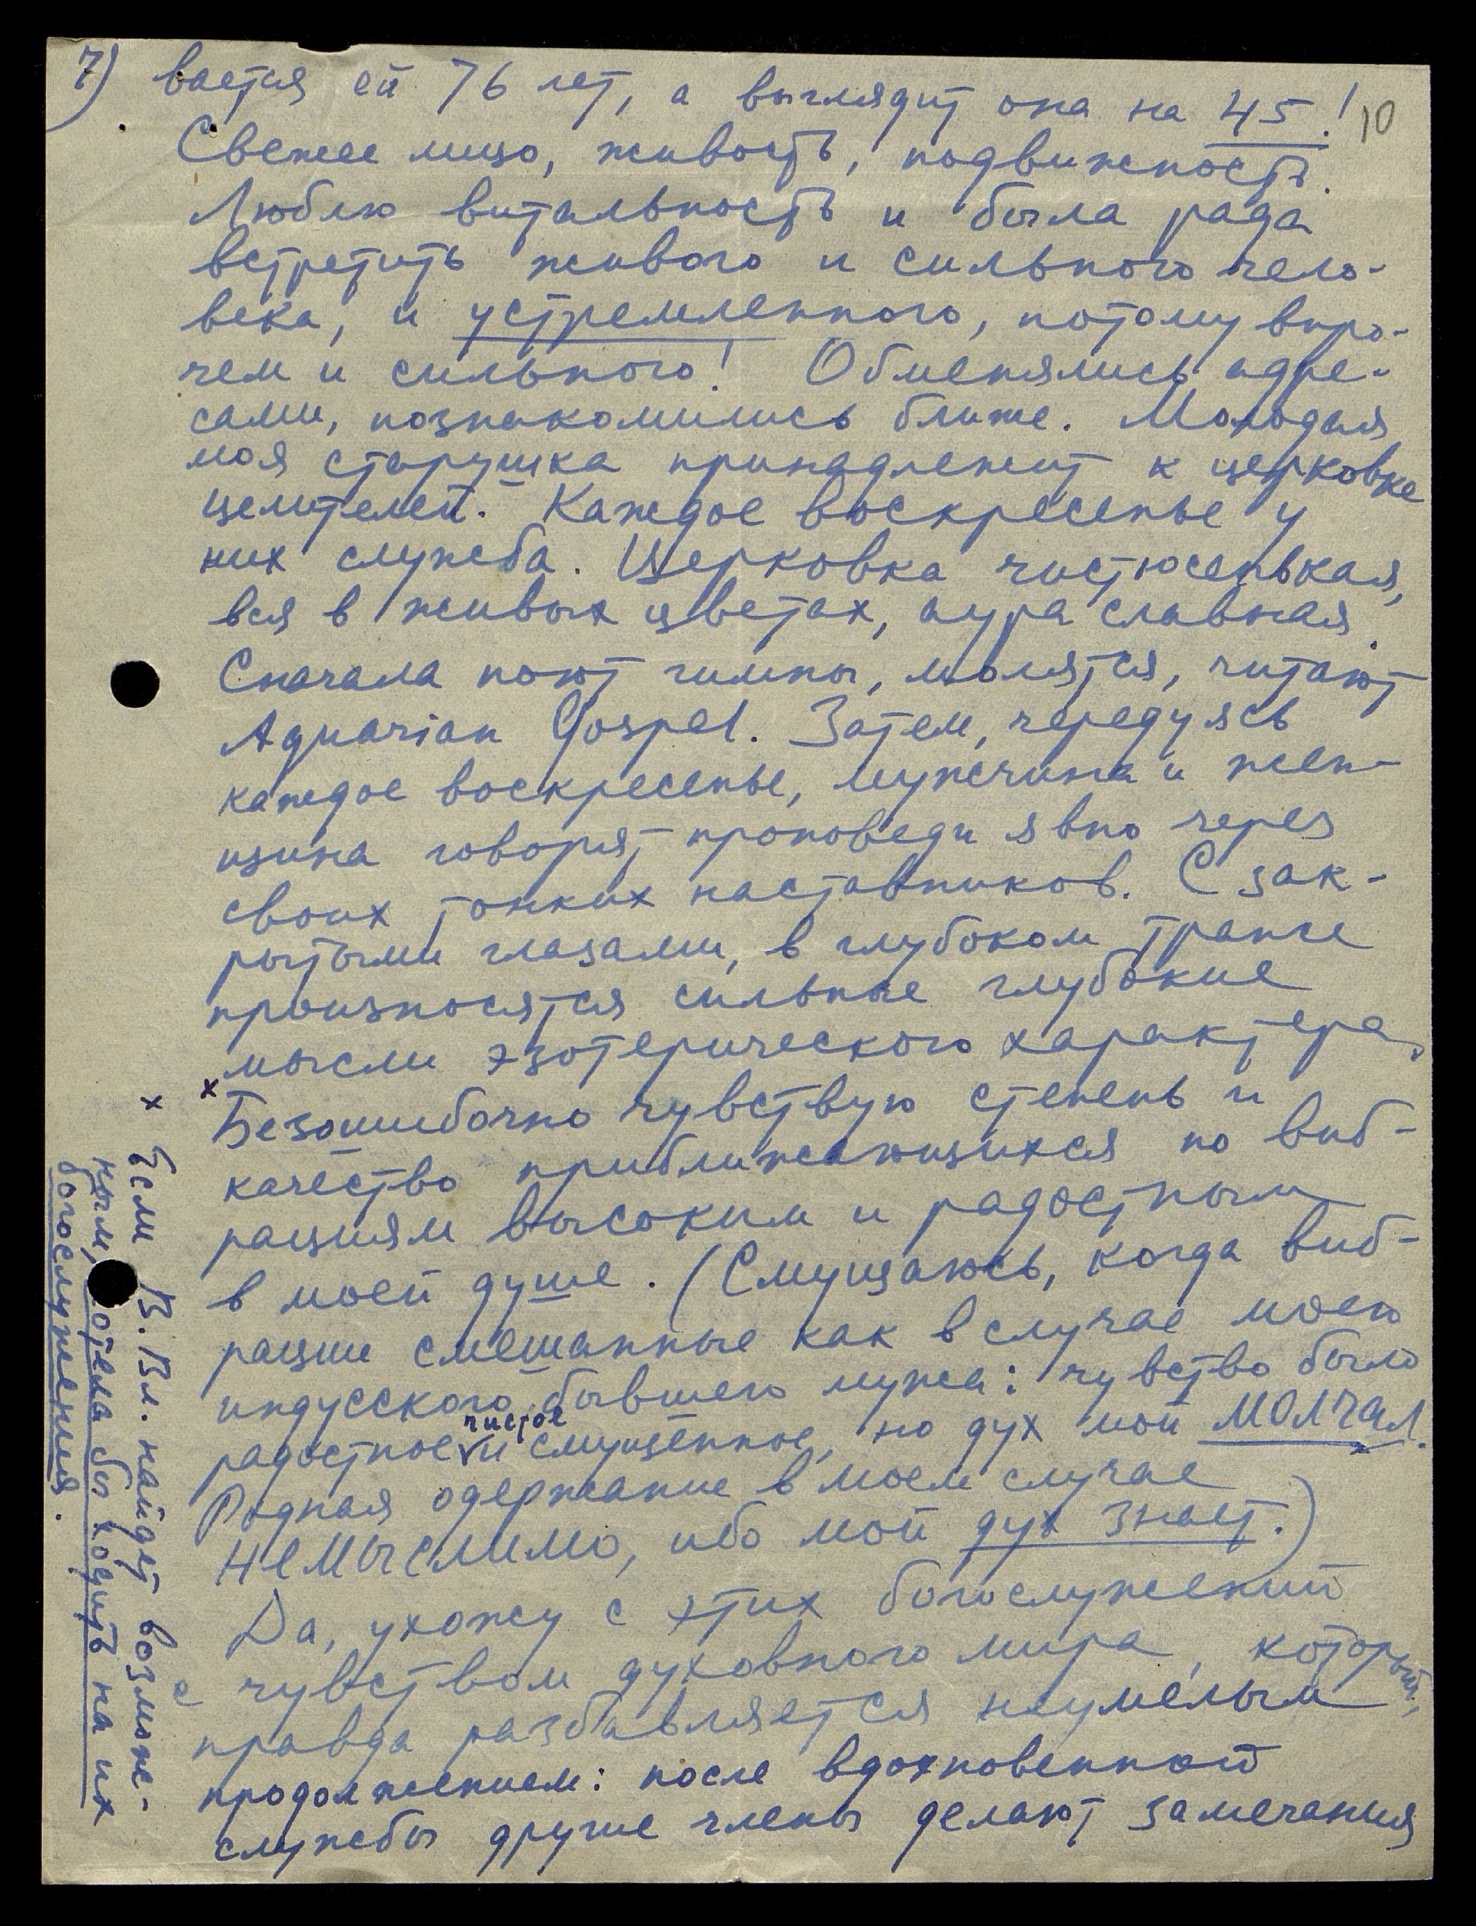 7) вается ей 76 лет, а выглядит она на 45! 10
Свежее лицо, живость, подвижность.
Люблю витальность и была рада
встретить живого и сильного чело-
века, и устремленного, потому впро-
чем и сильного! Обменялись адре-
сами, познакомились ближе. Молодая
моя старушка принадлежит к церковке
целителей. Каждое воскресенье у
них служба. Церковка чистюсенькая,
вся в живых цветах, аура славная.
Сначала поют гимны, молятся, читают
Aquarian Gospel. Затем, чередуясь
каждое воскресенье, мужчина и жен-
щина говорят проповеди явно через
своих тонких наставников. С зак-
рытыми глазами, в глубоком трансе
произносятся сильные глубокие
мысли эзотерического характера.
x Безошибочно чувствую степень и
качество приближающихся по виб-
рациям высоким и радостным
в моей душе. (Смущаюсь, когда виб-
рации смешанные как в случае моего
индусского бывшего мужа: чувство было
радостное чистое и смущённое, но дух мой молчал.
Родная одержание в моем случае
немыслимо, ибо мой дух знает.)
Да, ухожу с этих богослужений
с чувством духовного мира, который,
правда разбавляется неумелым
продолжением: после вдохновенной
службы другие члены делают замечания
x Если В. Вл. найдет возмож-
ным, хотела бы ходить на их
богослужения.